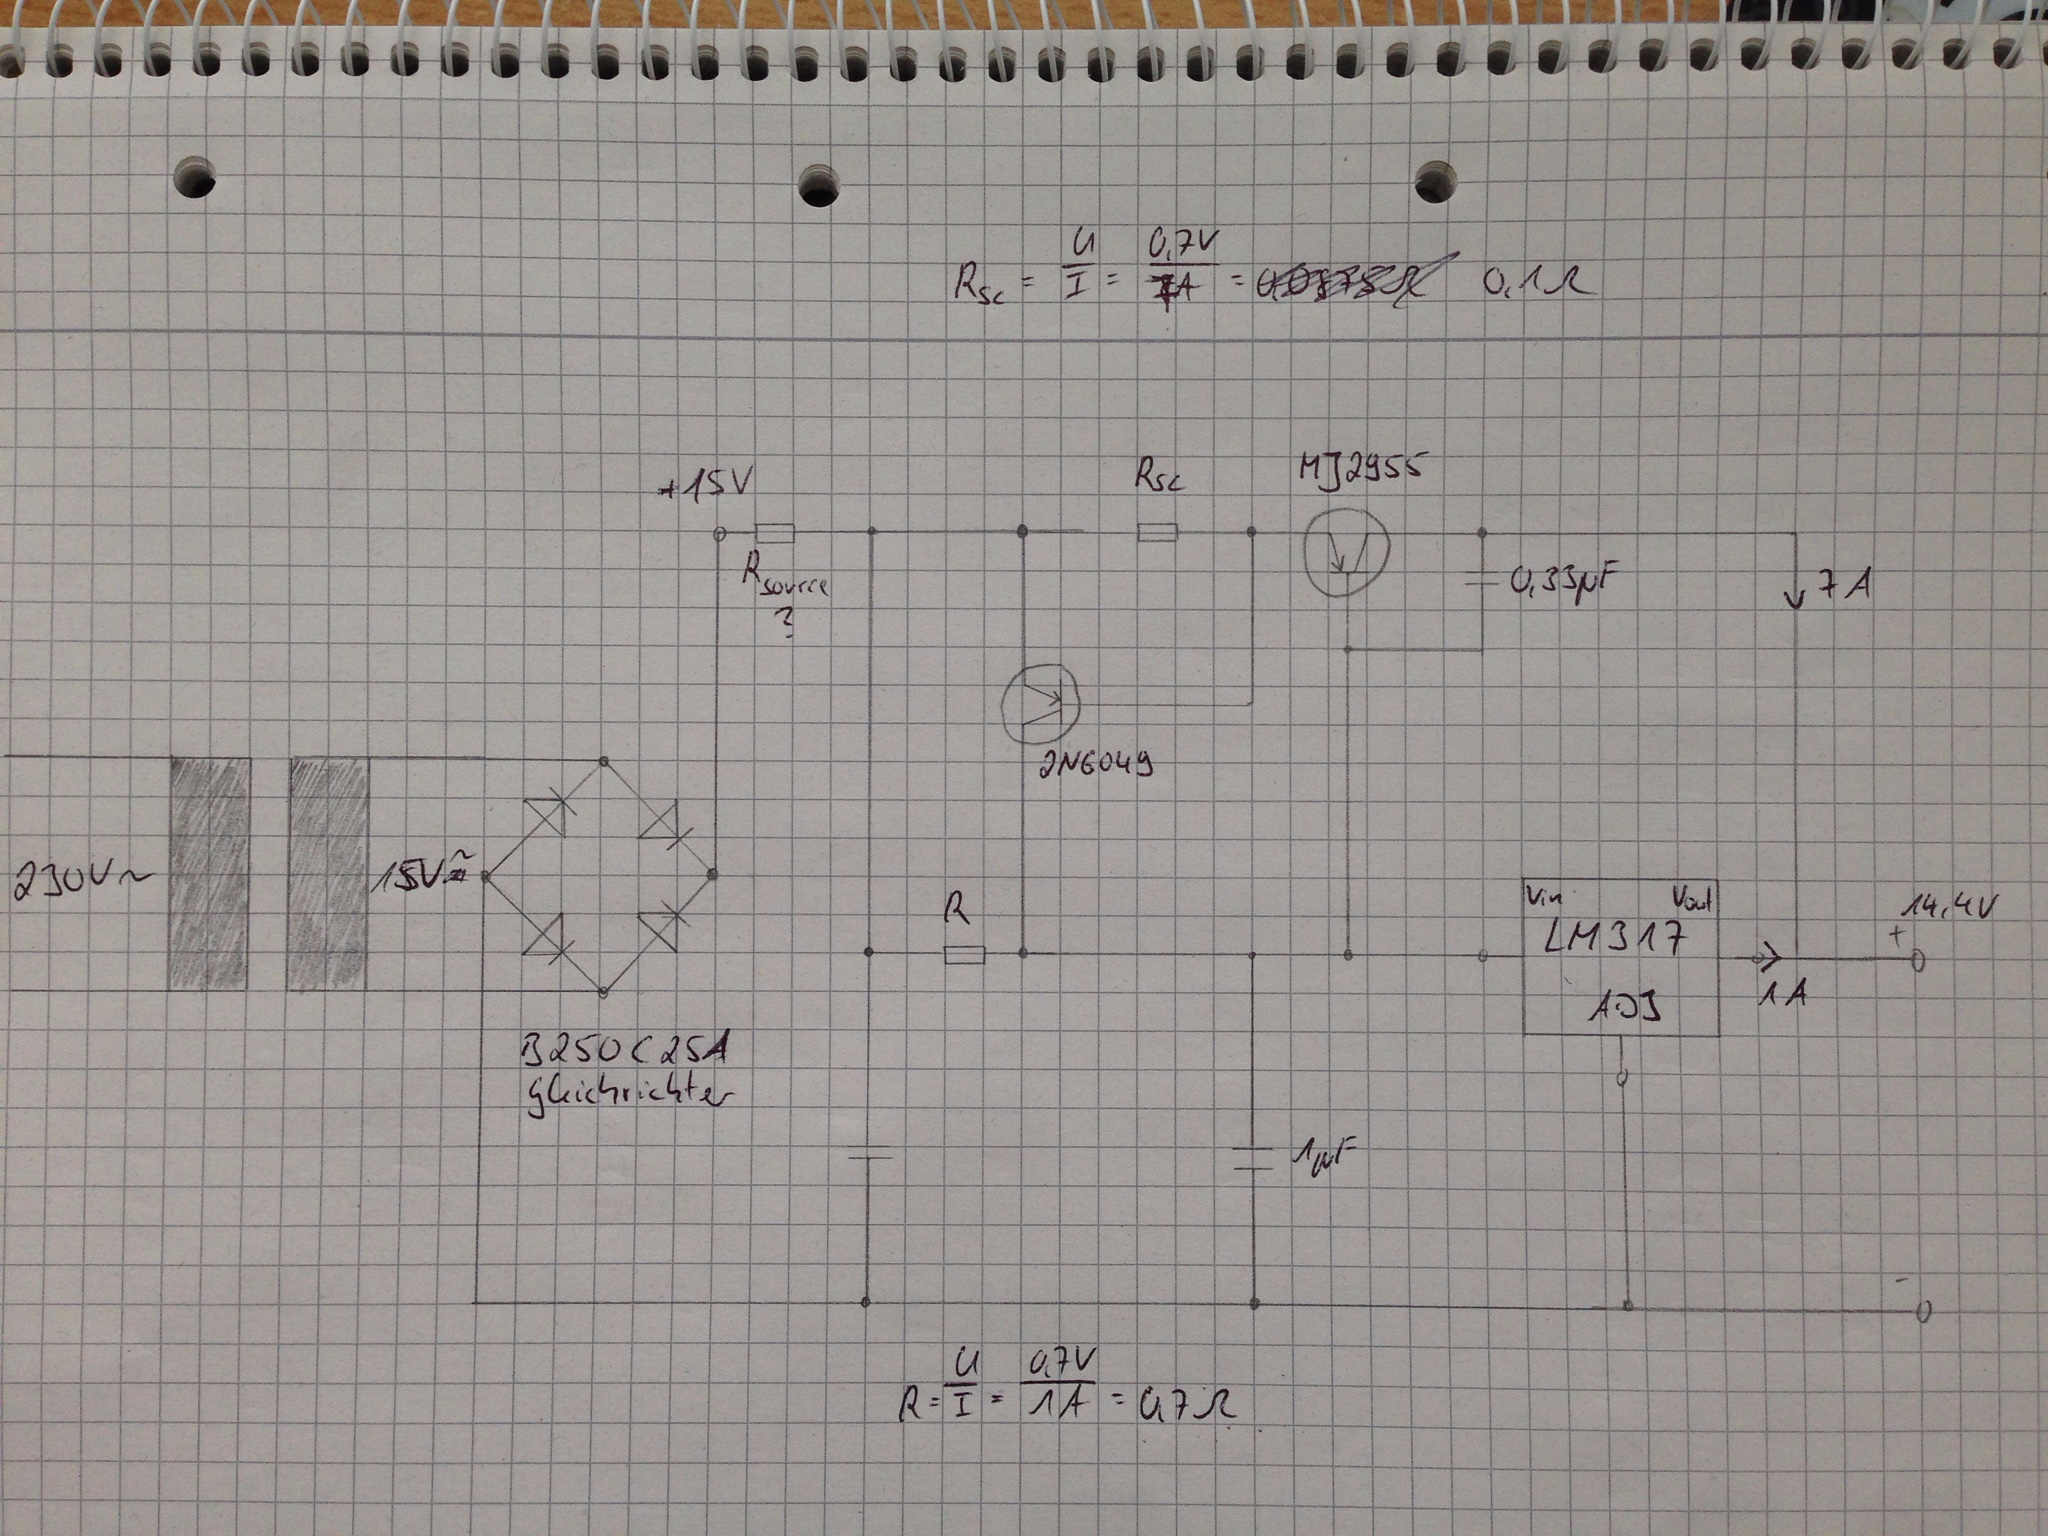 Rsc = U/I = 0,7V/7A = 0,1Ω
+15V
Rsource
?
Rsc
MJ2955
0,33µF
7A
2N6049
230V~
15V~
B250C25A
Gleichrichter
R
Vin Vout
LM317
ADJ
1A
14,4V
+
1µF
-
R = U/I = 0,7V/1A = 0,7Ω